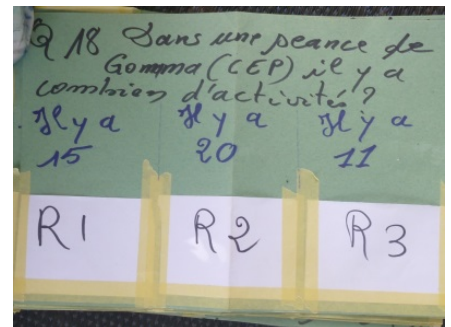 Q 18 Dans une séance de
Gomma (CEP) il y a
combien d'activités ?
Il y a Il y a Il y a
15 20 11
R1 R2 R3